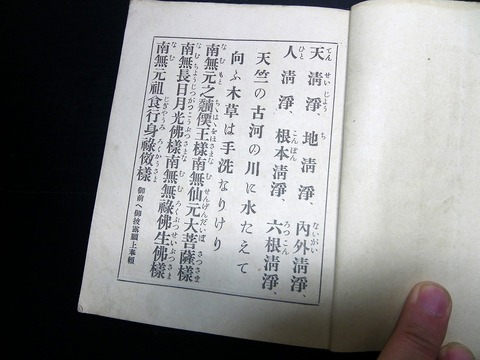 天清淨、地清淨、內外清淨、
人清淨、根本清淨、六根清淨、
天竺の古河の川に水たえて
向ふ木草は手洗なりけり
南無元之樣南無仙元大菩薩樣
南無長日月光佛樣南無無祿佛生佛樣
南無元祖食行身祿樣 御前へ御披露願上奉頼